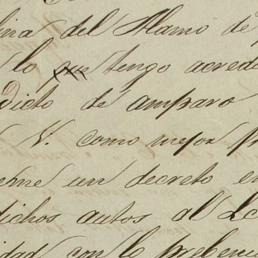 ina del Alamo de
lo que tengo acred
dicto de amparo
V. como mejor p
eme un decreto en
dichos autos al Lc
idad con lo prebeni